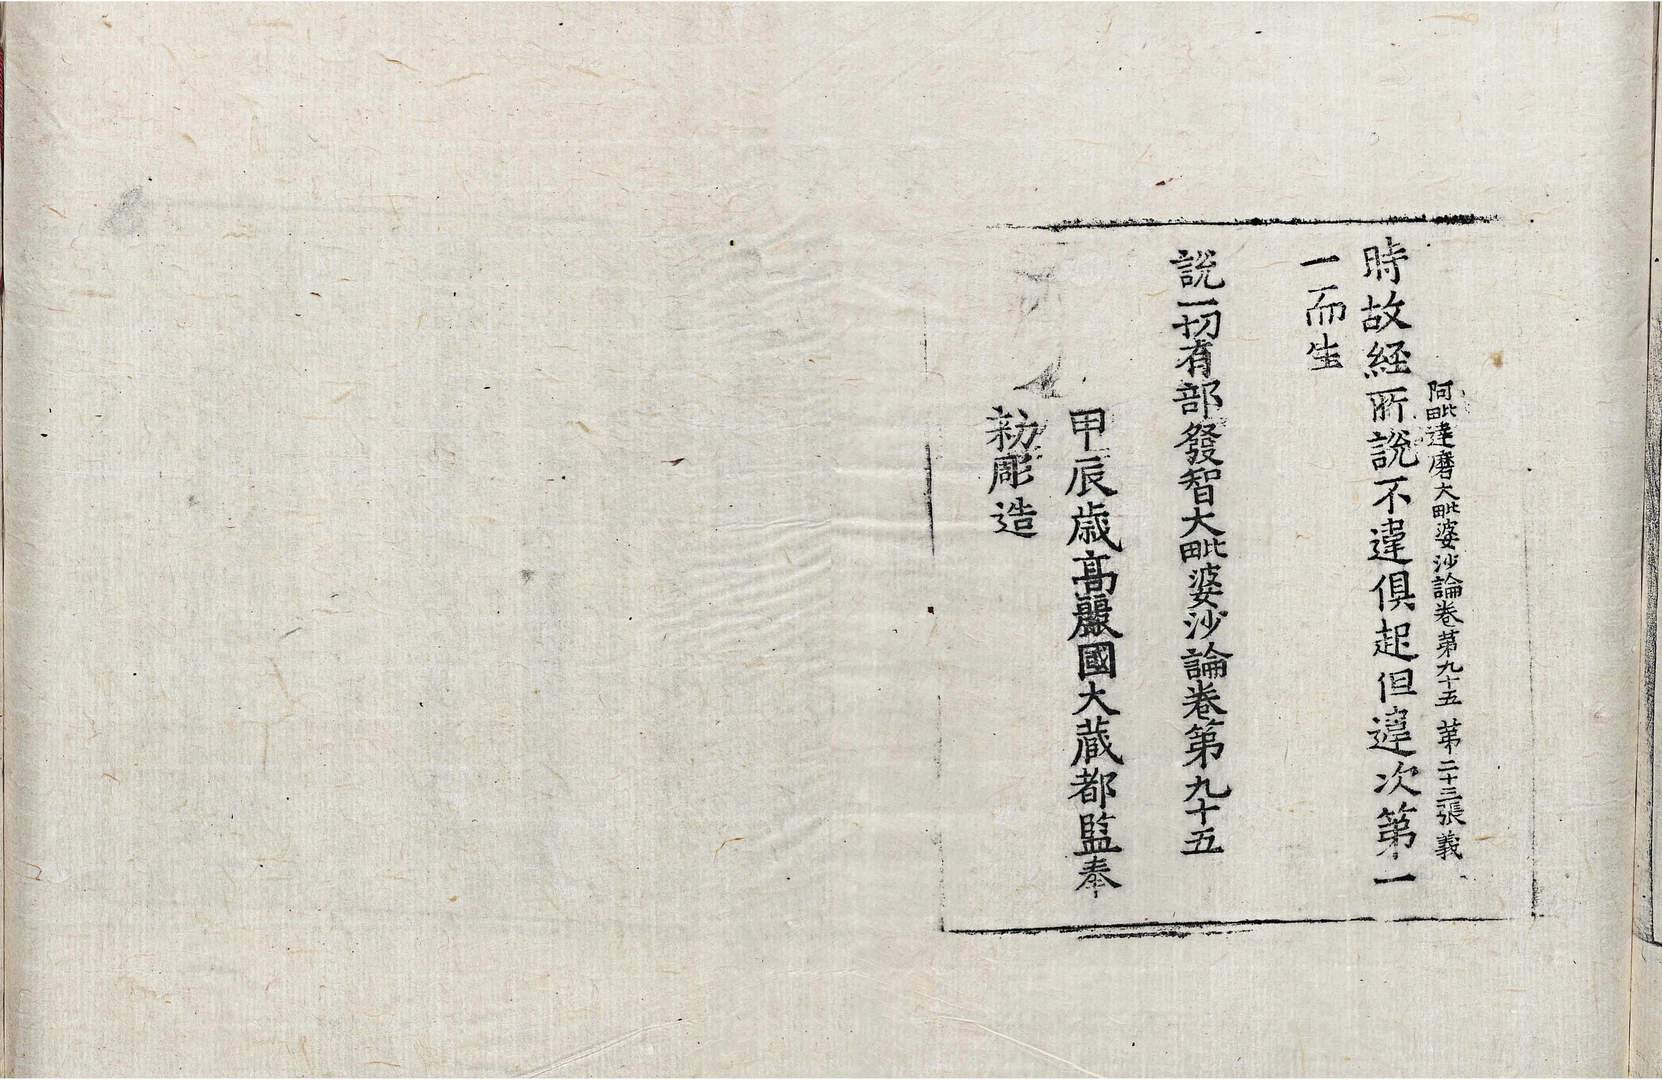 阿毗達磨大毗婆沙論卷第九十五 第二十三張 義
時故經所說不違俱起但違次第一
一而生
說一切有部發智大毗婆沙論卷第九十五
甲辰歲高麗國大藏都監奉
勑彫造